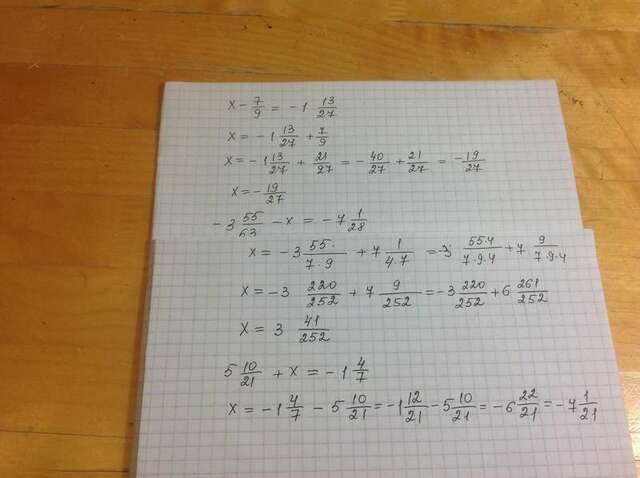 x - 7/9 = -1 13/27
x = -1 13/27 + 7/9
x = -1 13/27 + 21/27 = -40/27 + 21/27 = -19/27
x = -19/27
-3 55/63 - x = -7 1/28
x = -3 55/7·9 + 7 1/4·7 = -3 55·4/7·9·4 + 7 9/7·9·4
x = -3 220/252 + 7 9/252 = -3 220/252 + 6 261/252
x = 3 41/252
5 10/21 + x = -1 4/7
x = -1 4/7 - 5 10/21 = -1 12/21 - 5 10/21 = -6 22/21 = -7 1/21